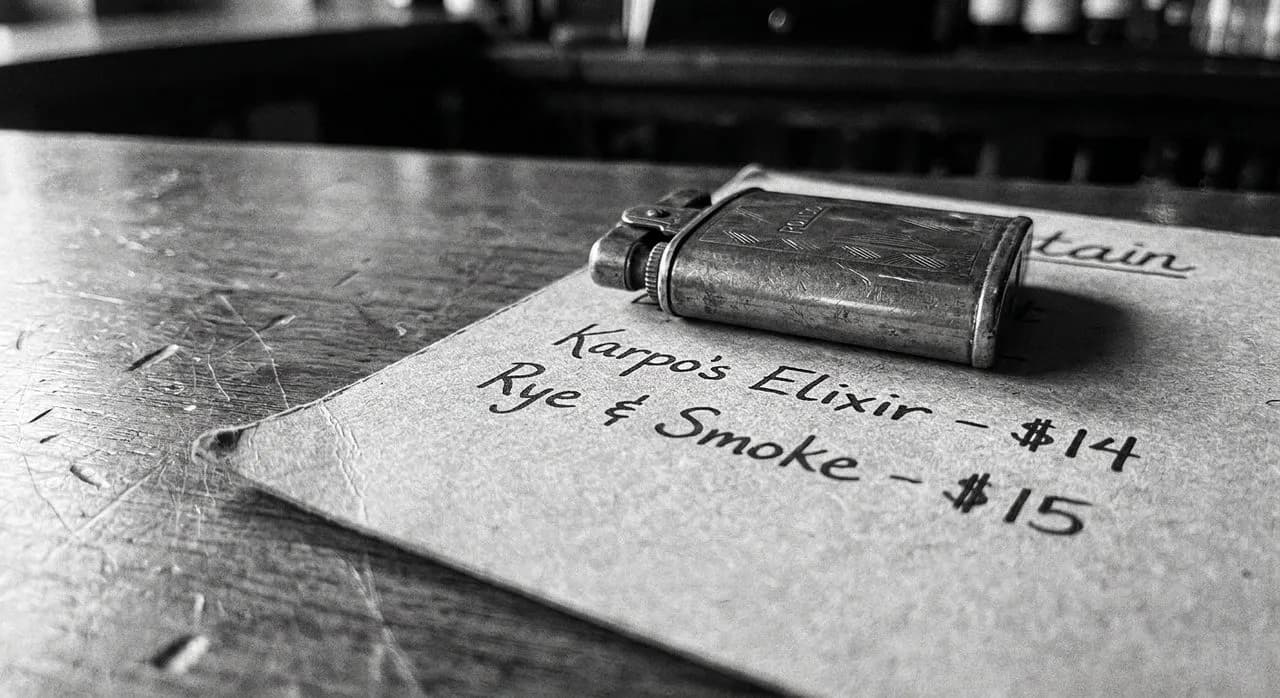 tain
Karpo's Elixir – $14
Rye & Smoke – $15